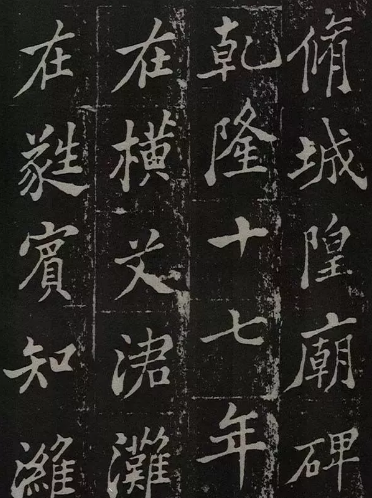 脩城隍廟碑
乾隆十七年
在橫艾涒灘
在蕤賓知濰